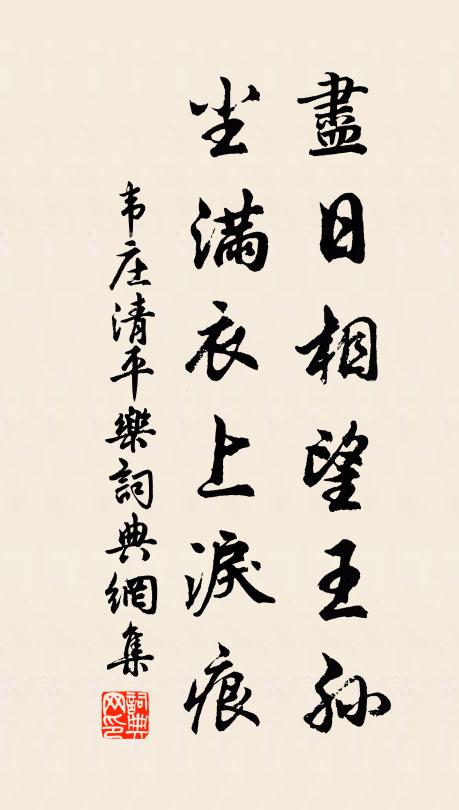 盡日相望王孙
尘满衣上淚痕
韦庄清平樂詞典網集
詞典网印